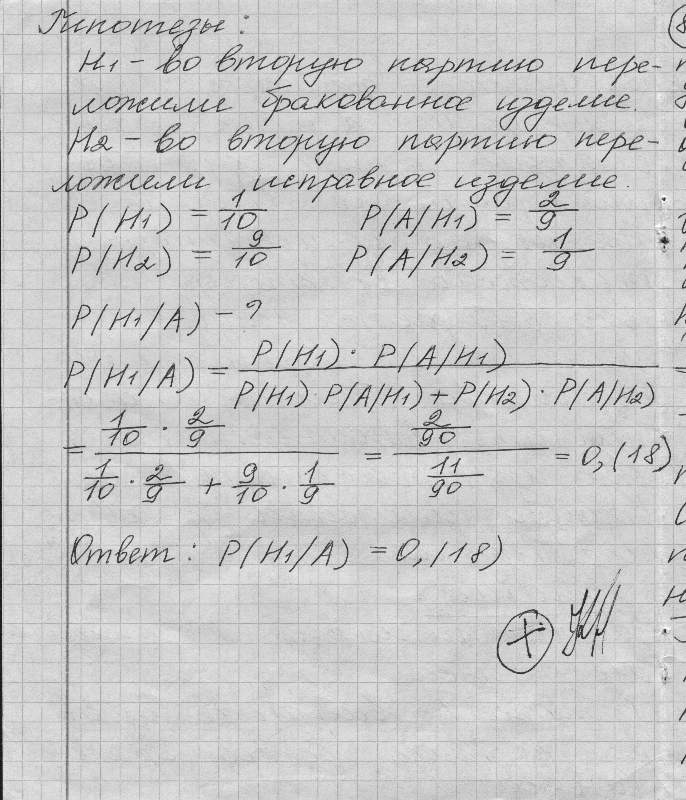 Гипотезы:
H1 - во вторую партию пере-
ложили бракованное изделие.
H2 - во вторую партию пере-
ложили исправное изделие.
P(H1) = 1/10 P(A/H1) = 2/9
P(H2) = 9/10 P(A/H2) = 1/9
P(H1/A) - ?
P(H1/A) = P(H1) · P(A/H1) / P(H1) · P(A/H1) + P(H2) · P(A/H2) =
= 1/10 · 2/9 / 1/10 · 2/9 + 9/10 · 1/9 = 2/90 / 11/90 = 0,(18)
Ответ: P(H1/A) = 0,(18)